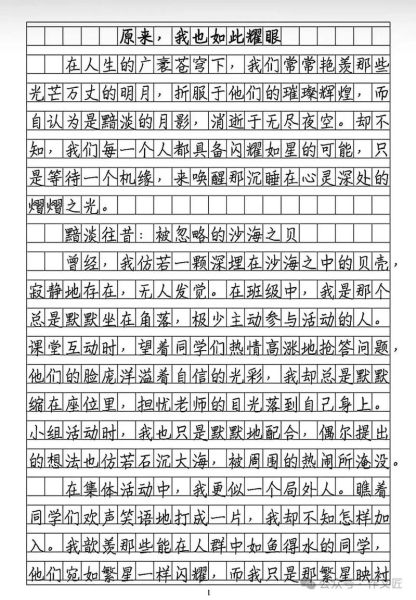 原来，我也如此耀眼
在人生的广袤苍穹下，我们常常艳羡那些
光芒万丈的明月，折服于他们的璀璨辉煌，而
自认为是黯淡的月影，消逝于无尽夜空。却不
知，我们每一个人都具备闪耀如星的可能，只
是等待一个机缘，来唤醒那沉睡在心灵深处的
熠熠之光。
黯淡往昔：被忽略的沙海之贝
曾经，我仿若一颗深埋在沙海之中的贝壳，
寂静地存在，无人发觉。在班级中，我是那个
总是默默坐在角落，极少主动参与活动的人。
课堂互动时，望着同学们热情高涨地抢答问题，
他们的脸庞洋溢着自信的光彩，我却总是默默
缩在座位里，担忧老师的目光落到自己身上。
小组活动时，我也只是默默地配合，偶尔提出
的想法也仿若石沉大海，被周围的热闹所淹没。
在集体活动中，我更似一个局外人。瞧着
同学们欢声笑语地打成一片，我却不知怎样加
入。我歆羡那些能在人群中如鱼得水的同学，
他们宛如繁星一样闪耀，而我只是那繁星映衬
1